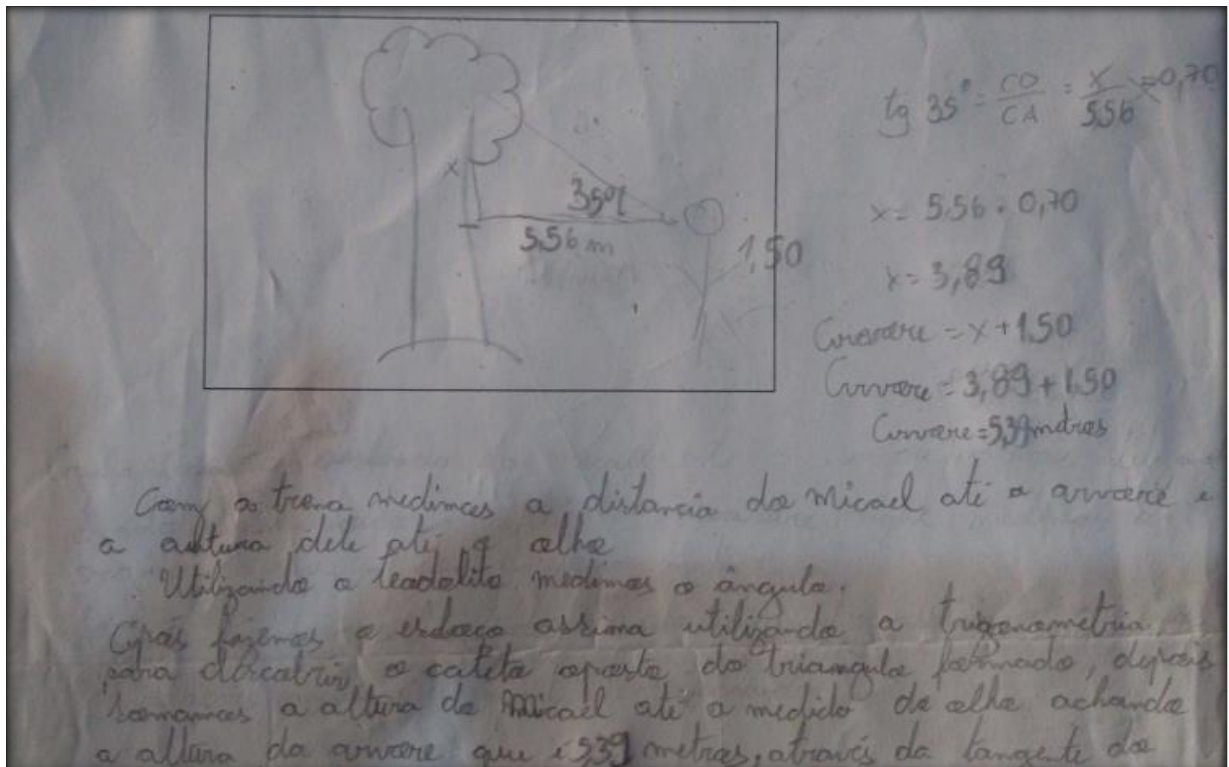 tg 35° = CO/CA = X/5,56 = 0,70
x
35°
5,56 m
1,50
x = 5,56 . 0,70
x = 3,89
Arvore = x + 1,50
Arvore = 3,89 + 1,50
Arvore = 5,39 metros
Com a trena medimos a distancia do Micael até a arvore e
a autura dele até o olho
Utilizando o teodolito medimos o ângulo.
Após fazemos o esboço assima utilizando a trigonometria
para descobrir o cateto oposto do triangulo formado, depois
somamos a altura do Micael até a medido do olho achando
a altura da arvore que é 5,39 metros, através da tangente do